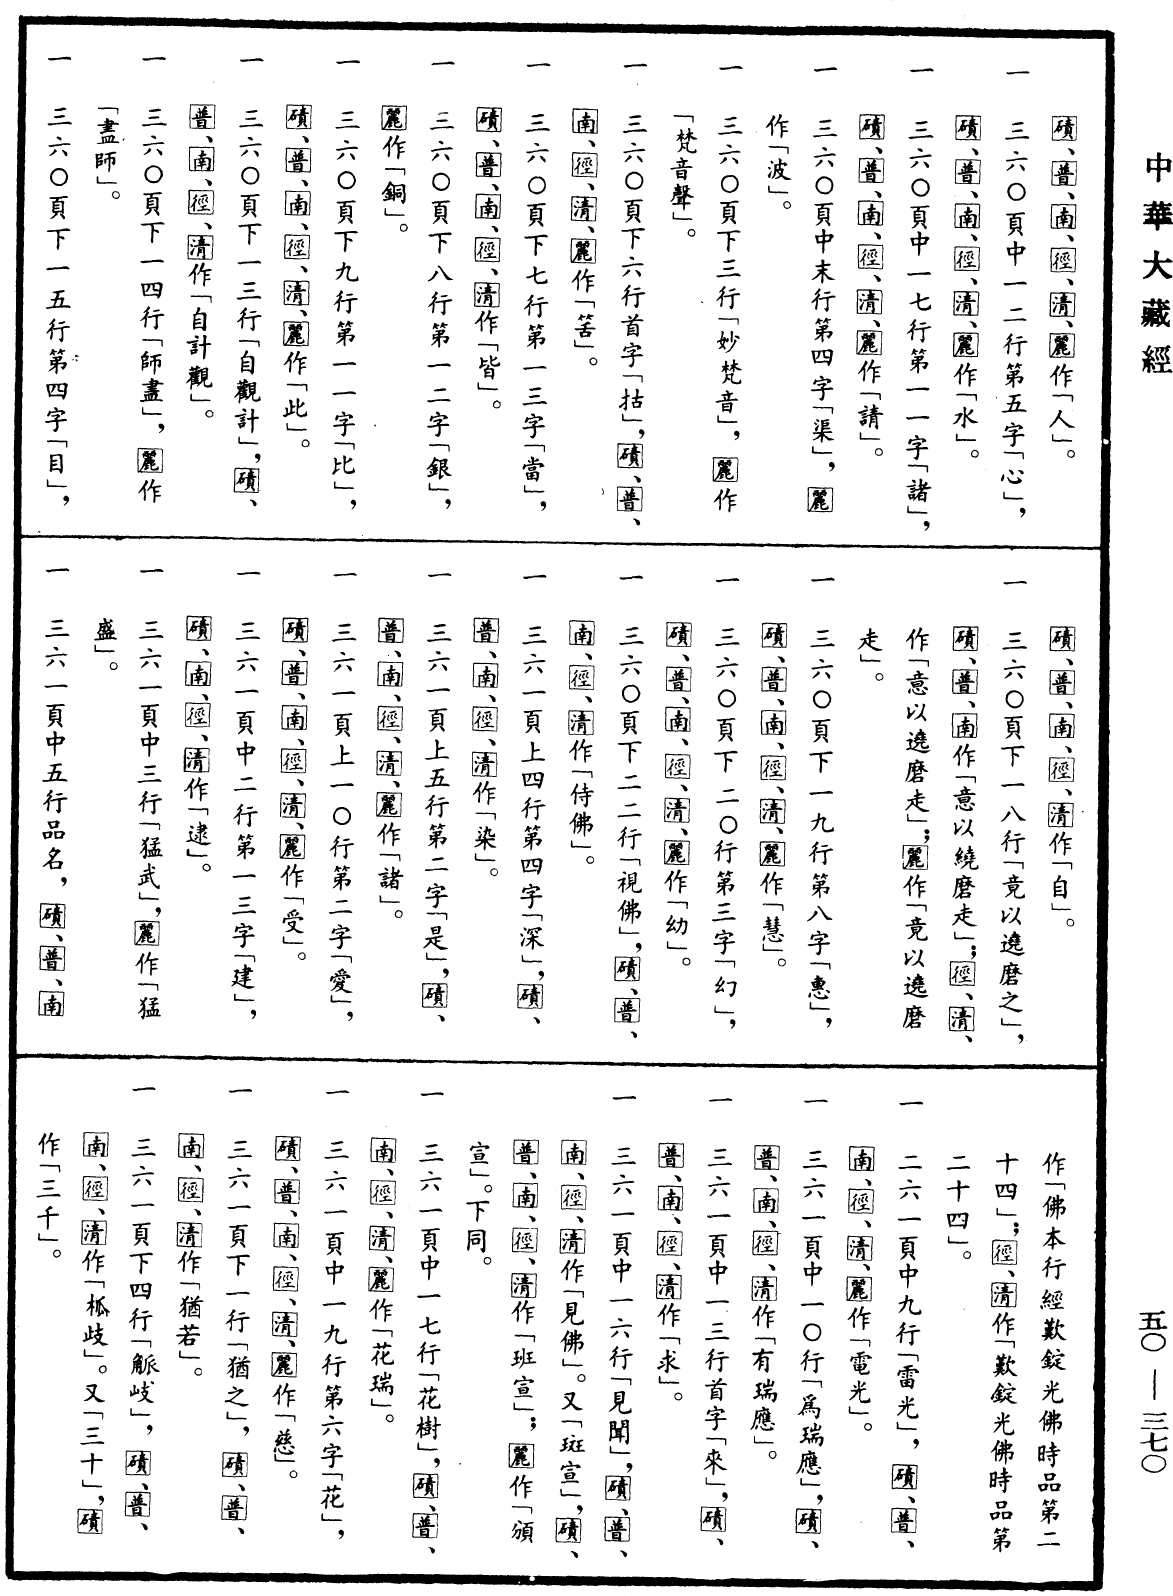 中華大藏經
五〇—三七〇
磧、普、南、徑、清、麗作「人」。
一 三六〇頁中一二行第五字「心」，
磧、普、南、徑、清、麗作「水」。
一 三六〇頁中一七行第一一字「諸」，
磧、普、南、徑、清、麗作「請」。
一 三六〇頁中末行第四字「渠」，麗
作「波」。
一 三六〇頁下三行「妙梵音」，麗作
「梵音聲」。
一 三六〇頁下六行首字「括」，磧、普、
南、徑、清、麗作「筈」。
一 三六〇頁下七行第一三字「當」，
磧、普、南、徑、清作「皆」。
一 三六〇頁下八行第一二字「銀」，
麗作「銅」。
一 三六〇頁下九行第一一字「比」，
磧、普、南、徑、清、麗作「此」。
一 三六〇頁下一三行「自觀計」，磧、
普、南、徑、清作「自計觀」。
一 三六〇頁下一四行「師盡」，麗作
「盡師」。
一 三六〇頁下一五行第四字「目」，
磧、普、南、徑、清作「自」。
一 三六〇頁下一八行「竟以遶磨之」，
磧、普、南作「意以繞磨走」；徑、清、
作「意以遶磨走」；麗作「竟以遶磨
走」。
一 三六〇頁下一九行第八字「惠」，
磧、普、南、徑、清、麗作「慧」。
一 三六〇頁下二〇行第三字「幻」，
磧、普、南、徑、清、麗作「幼」。
一 三六〇頁下二二行「視佛」，磧、普、
南、徑、清作「侍佛」。
一 三六一頁上四行第四字「深」，磧、
普、南、徑、清作「染」。
一 三六一頁上五行第二字「是」，磧、
普、南、徑、清、麗作「諸」。
一 三六一頁上一〇行第二字「愛」，
磧、普、南、徑、清、麗作「受」。
一 三六一頁中二行第一三字「建」，
磧、南、徑、清作「逮」。
一 三六一頁中三行「猛武」，麗作「猛
盛」。
一 三六一頁中五行品名，磧、普、南
作「佛本行經歎錠光佛時品第二
十四」；徑、清作「歎錠光佛時品第
二十四」。
一 二六一頁中九行「雷光」，磧、普、
南、徑、清、麗作「電光」。
一 三六一頁中一〇行「爲瑞應」，磧、
普、南、徑、清作「有瑞應」。
一 三六一頁中一三行首字「來」，磧、
普、南、徑、清作「求」。
一 三六一頁中一六行「見聞」，磧、普、
南、徑、清作「見佛」。又「斑宣」，磧、
普、南、徑、清作「班宣」；麗作「頒
宣」。下同。
一 三六一頁中一七行「花樹」，磧、普、
南、徑、清、麗作「花瑞」。
一 三六一頁中一九行第六字「花」，
磧、普、南、徑、清、麗作「慈」。
一 三六一頁下一行「猶之」，磧、普、
南、徑、清作「猶若」。
一 三六一頁下四行「觚岐」，磧、普、
南、徑、清作「柧歧」。又「三十」，磧
作「三千」。